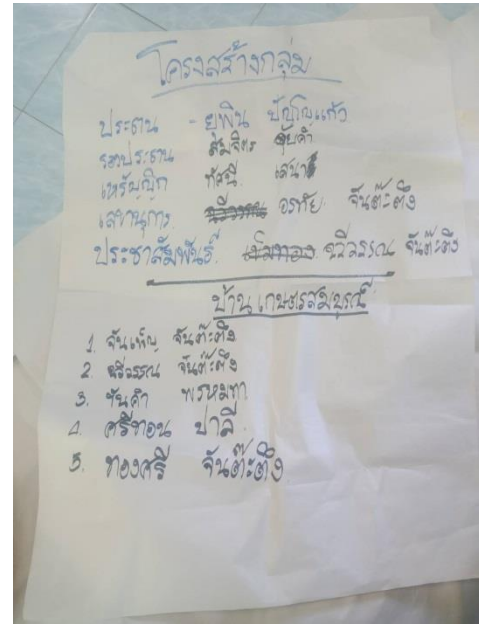 โครงสร้างกลุ่ม
ประธาน - ยุพิน ปัญญาแก้ว
รองประธาน สมจิตร
เหรัญญิก เสนา
เลขานุการ อรทัย จันต๊ะตึง
ประชาสัมพันธ์ ฉวีวรรณ จันต๊ะตึง
บ้านเกษตรสมบูรณ์
1. จันเพ็ญ จันต๊ะตึง
2. ฉวีวรรณ จันต๊ะตึง
3. จันคำ พรหมทา
4. ศรีทอน ปาลี
5. ทองศรี จันต๊ะตึง